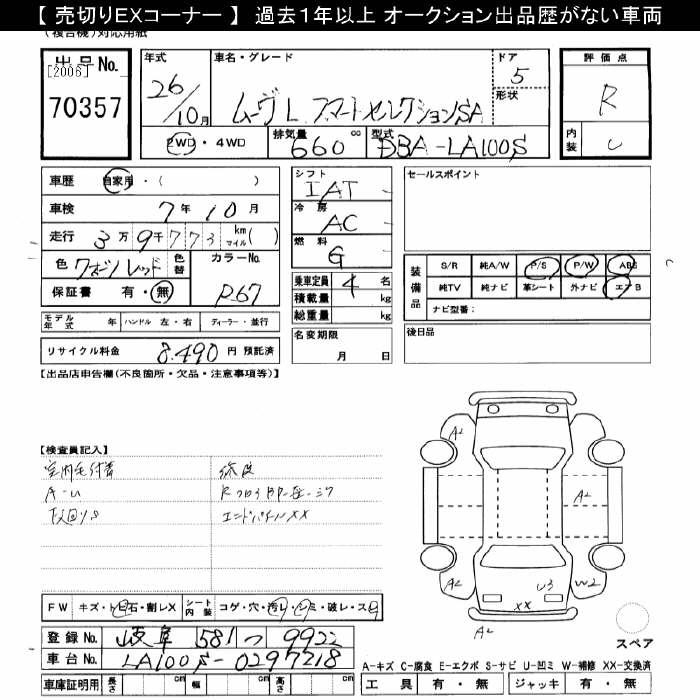 【 売切りEXコーナー 】 過去1年以上 オークション出品歴がない車両
(複合機)対応用紙
出品No.
[2006]
70357
年式
26/10月
車名・グレード
ムーヴL スマートセレクションSA
ドア
5
形状
評価点
R
内装
2WD・4WD
排気量
660
cc
型式
DBA-LA100S
車歴
自家用・( )
車検
7年10月
走行
3万9千773
km
マイル
( )
色
ワボンレッド
色替
カラーNo.
R67
保証書 有・無
シフト
IAT
冷房
AC
燃料
G
乗車定員 4 名
積載量 kg
総重量 kg
セールスポイント
装備品
S/R 純A/W P/S P/W ABS
純TV 純ナビ 革シート 外ナビ エアB
ナビ型番:
モデル年式 年 ハンドル 左・右 ディーラー・並行
リサイクル料金 8,490 円 預託済
名変期限
月 日
後日品
【出品店申告欄(不良箇所・欠品・注意事項等)】
【検査員記入】
室内毛付着
修復
A-U
エンドパネルXX
A2
A2
A2
A2
U3
W2
XX
A2
スペア
FW キズ・トビ石・割レX シート内装 コゲ・穴・汚レ・シミ・破レ・スレ
登録No. 岐阜 581 つ 9922
車台No. LA100S-0297218
車庫証明用 長さ cm 幅 cm 高さ cm
A-キズ C-腐食 E-エクボ S-サビ U-凹ミ W-補修 XX-交換済
工具 有・無 ジャッキ 有・無